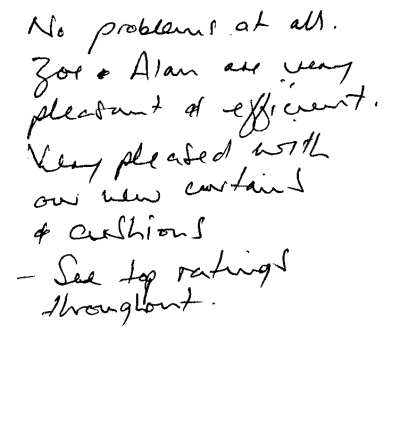 No problems at all.
Zoe & Alan are very
pleasant & efficient.
Very pleased with
our new curtains
& cushions
- See top ratings
throughout.